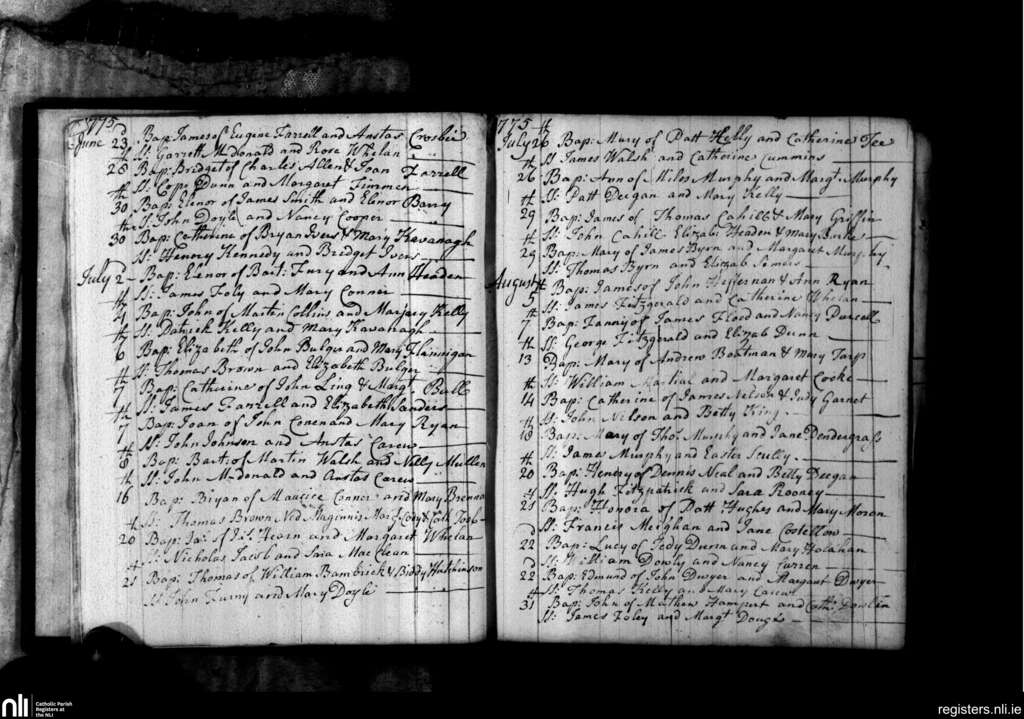 1775
June 23d Bap: James of Eugene Farrell and Anstas Crosbie
Ss: Garrett McDonald and Rose Whelan
26th Bap: Bridget of Charles Allen & Joan Farrell
Ss: Dunn and Margaret Timmen
30th Bap: Elenor of James Smith and Elenor Barry
Ss: John Doyle and Nancy Cooper
30th Bap: Catherine of Bryan Ivers & Mary Kavanagh
Ss: Henery Kennedy and Bridget Ivers
July 2 Bap: Elenor of Bart: Fury and Ann Headen
Ss: James Foly and Mary Conner
4th Bap: John of Martin Collins and Marjery Kelly
Ss: Patrick Kelly and Mary Kavanagh
6th Bap: Elizabeth of John Bulger and Mary Flinnigan
Ss: Thomas Brown and Elizabeth Bulger
7th Bap: Catherine of John Ling & Margt. Bull
Ss: James Farrell and Elizabeth Sanders
7th Bap: Joan of John Conen and Mary Ryan
Ss: John Johnson and Anstas Carew
8th Bap: Bart: of Martin Walsh and Nelly Mullen
Ss: John McDonald and Anstas Carew
16th Bap: Bryan of Maurice Conner and Mary Brenan
Ss: Thomas Brown Ned Maginnis
20th Bap: Ja: of Hearn and Margaret Whelan
Ss: Nicholas Jacob and Sara MacClean
21st Bap: Thomas of William Bambrick & Biddy Hutchinson
Ss John Furny and Mary Doyle
1775
July 26th Bap: Mary of Patt Kelly and Catherine Fee
Ss James Walsh and Catherine Cummins
26th Bap: Ann of Miles Murphy and Margt. Murphy
Ss: Patt Deegan and Mary Kelly
29th Bap: James of Thomas Cahill & Mary Griffin
Ss: John Cahill Elizab: Headen & Mary
29th Bap: Mary of James Byrn and Margaret Murphy
Ss: Thomas Byrn and Elizab Somers
August 5th Bap: James of John Heffernan & Ann Ryan
Ss: James Fitzgerald and Catherine Whelan
7th Bap: Fanny of James Flood and Nancy Purcell
Ss: George Fitzgerald and Elizab Dunn
13th Bap: Mary of Andrew Boatman & Mary Tarp
Ss: William Martial and Margaret Cooke
14th Bap: Catherine of James Nelson & Judy Garnet
Ss: John Nilson and Betty King
18th Bap: Mary of Thos. Murphy and Jane Pendergass
Ss: James Murphy and Easter Scully
20th Bap: Henery of Dennis Neal and Betty Deegan
Ss: Hugh Fitzpatrick and Sara Rooney
21st Bap: Honora of Patt Hughes and Mary Moran
Ss: Francis Meighan and Jane Costellow
22d Bap: Lucy of Tedy Dunn and Mary Holahan
Ss: William Dowly and Nancy Curren
22d Bap: Edmund of John Dwyer and Margaret Dwyer
Ss: Thomas Kelly and Mary Carew
31st Bap: John of Mathew Hampert and Cath: Dowlin
Ss: James Foley and Margt
nli
Catholic Parish
Registers at
the NLI
registers.nli.ie